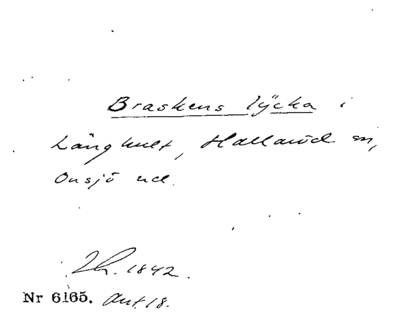 Braskens lycka i
Långhult, Hallaröd sn,
Onsjö hd.
Th. 1842.
Nr 6165. Ant. 18.